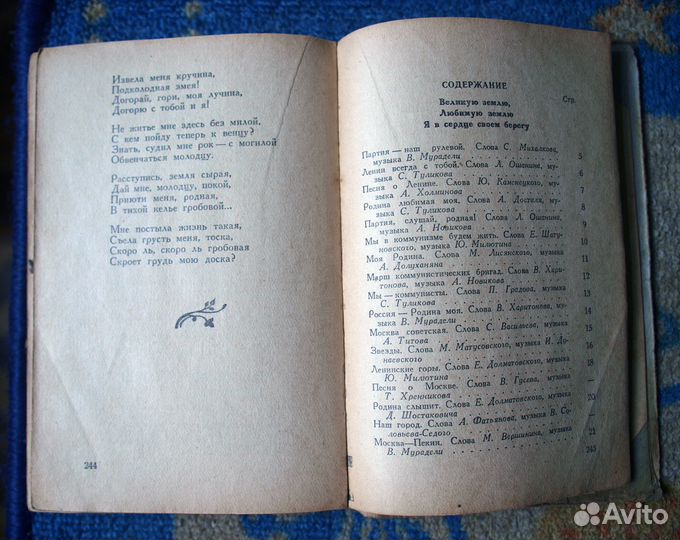 Извела меня кручина,
Подколодная змея!
Догорай, гори, моя лучина,
Догорю с тобой и я!
Не житье мне здесь без милой,
С кем пойду теперь к венцу?
Знать, судил мне рок — с могилой
Обвенчаться молодцу.
Расступись, земля сырая,
Дай мне, молодцу, покой,
Приюти меня, родная,
В тихой келье гробовой...
Мне постыла жизнь такая,
Съела грусть меня, тоска,
Скоро ль, скоро ль гробовая
Скроет грудь мою доска?
244
СОДЕРЖАНИЕ
Великую землю,
Стр.
Любимую землю
Я в сердце своем берегу
Партия — наш рулевой. Слова С. Михалкова,
музыка В. Мурадели 5
Ленин всегда с тобой. Слова Л. Ошанина, му-
зыка С. Туликова 6
Песня о Ленине. Слова Ю. Каменецкого, му-
зыка А. Холминова 7
Родина любимая моя. Слова А. Досталя, му-
зыка С. Туликова 8
Партия, слушай, родная! Слова Л. Ошанина,
музыка А. Новикова 9
Мы в коммунизме будем жить. Слова Е. Шату-
новского, музыка Ю. Милютина 10
Моя Родина. Слова М. Лисянского, музыка
А. Долуханяна 11
Марш коммунистических бригад. Слова В. Хари-
тонова, музыка А. Новикова 12
Мы — коммунисты. Слова П. Градова, музыка
С. Туликова 13
Россия — Родина моя. Слова В. Харитонова, му-
зыка В. Мурадели 14
Москва советская. Слова С. Васильева, музыка
А. Титова 15
Звезды. Слова М. Матусовского, музыка И. Ду-
наевского 16
Ленинские горы. Слова Е. Долматовского, музыка
Ю. Милютина 18
Песня о Москве. Слова В. Гусева, музыка
Т. Хренникова —
Родина слышит. Слова Е. Долматовского, музыка
Д. Шостаковича 20
Наш город. Слова А. Фатьянова, музыка В. Со-
ловьева-Седого —
Москва—Пекин. Слова М. Вершинина, музыка
В. Мурадели 21
245
Avito